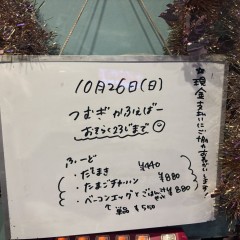 10月26日(日)
つむぎかふぇばー
おそらく23じまで
ふーど
・だしまき ¥440
・たまごチャーハン ¥880
・ベーコンエッグとごはん ¥880
単品 ¥550
現金支払いにご協力
します!